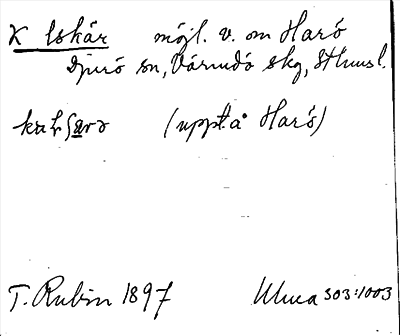 X Iskär möjl. v. om Harö
Djurö sn, Värmdö skg, Sthmsl.
(uppt. å Harö)
T. Rubin 1897 Ulma 303:1003